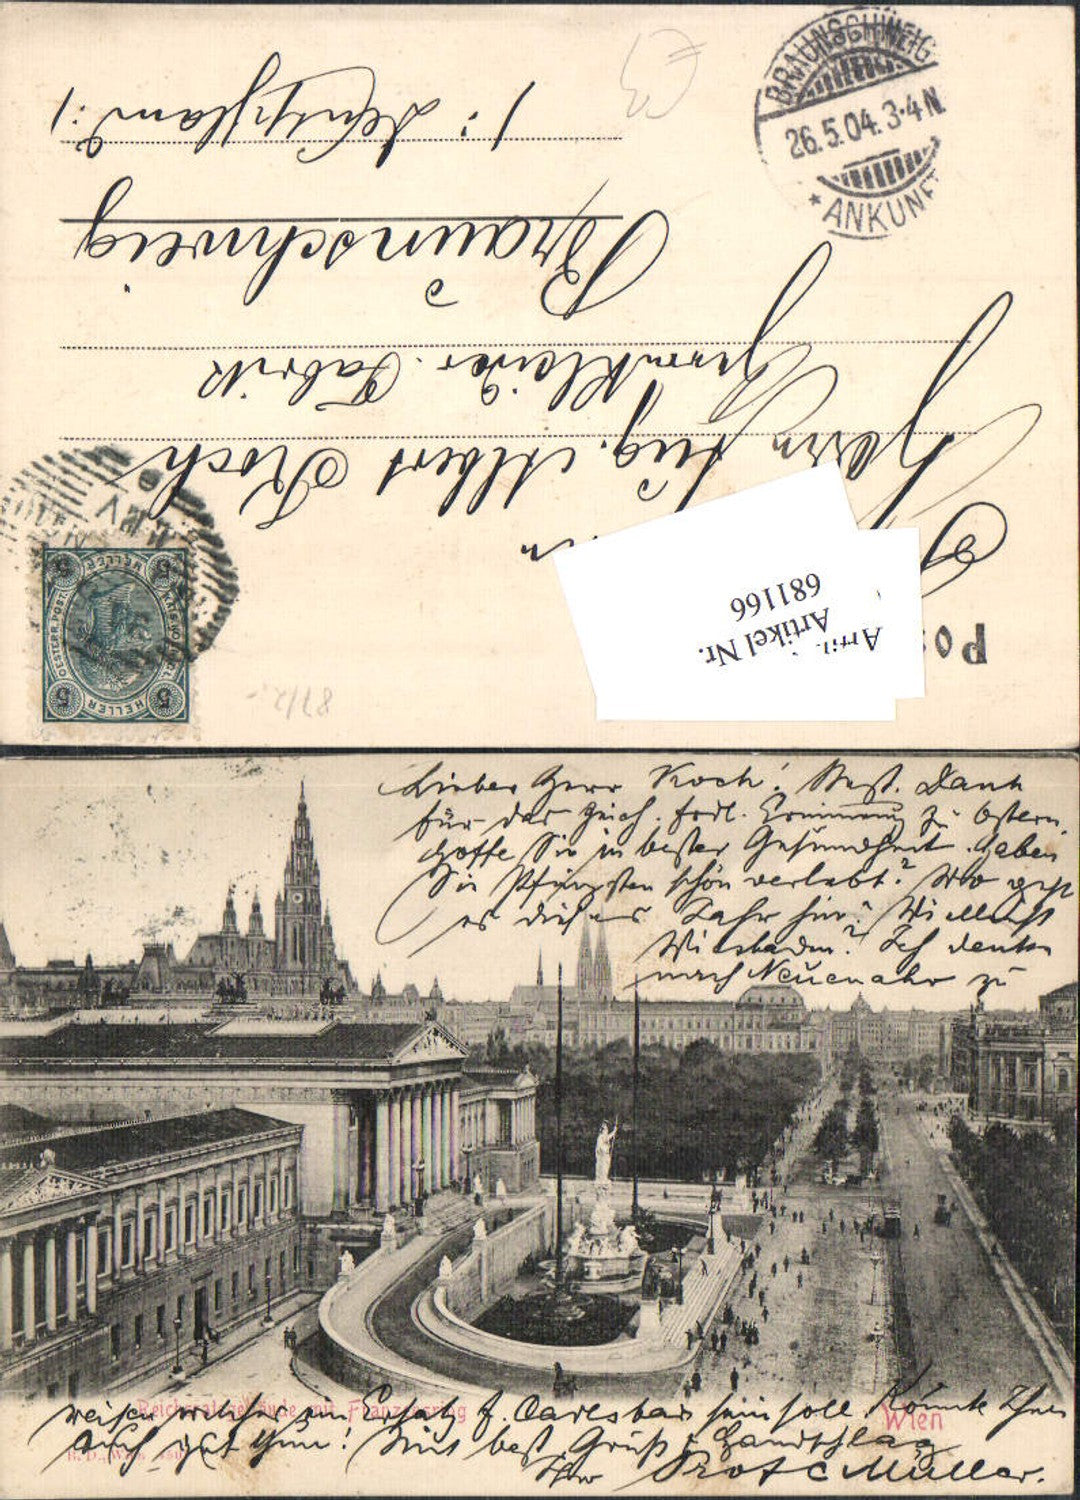 BRAUNSCHWEIG
26.5.04. 3-4N.
* ANKUNFT
Herrn Aug. Albert Koch
Herrenkleider-Fabrik
Braunschweig
5 HELLER 5
Artikel Nr.
681166
87/2.-
Lieber Herr Koch! Best. Dank
für das frdl. Erinnerung zu Ostern.
Hoffe Sie in bester Gesundheit. Haben
Sie Pfingsten schön verlebt? Wo geht
es dieses Jahr hin? Vielleicht
Wiesbaden? Ich denke
nach Neuenahr zu
Reichsratsgebäude mit Franzensring
Wien
reisen welches ein Ersatz f. Carlsbad sein soll. Könnte Ihnen
auch gut thun! Mit best. Gruß & Handschlag
Ihr Prof C Müller.